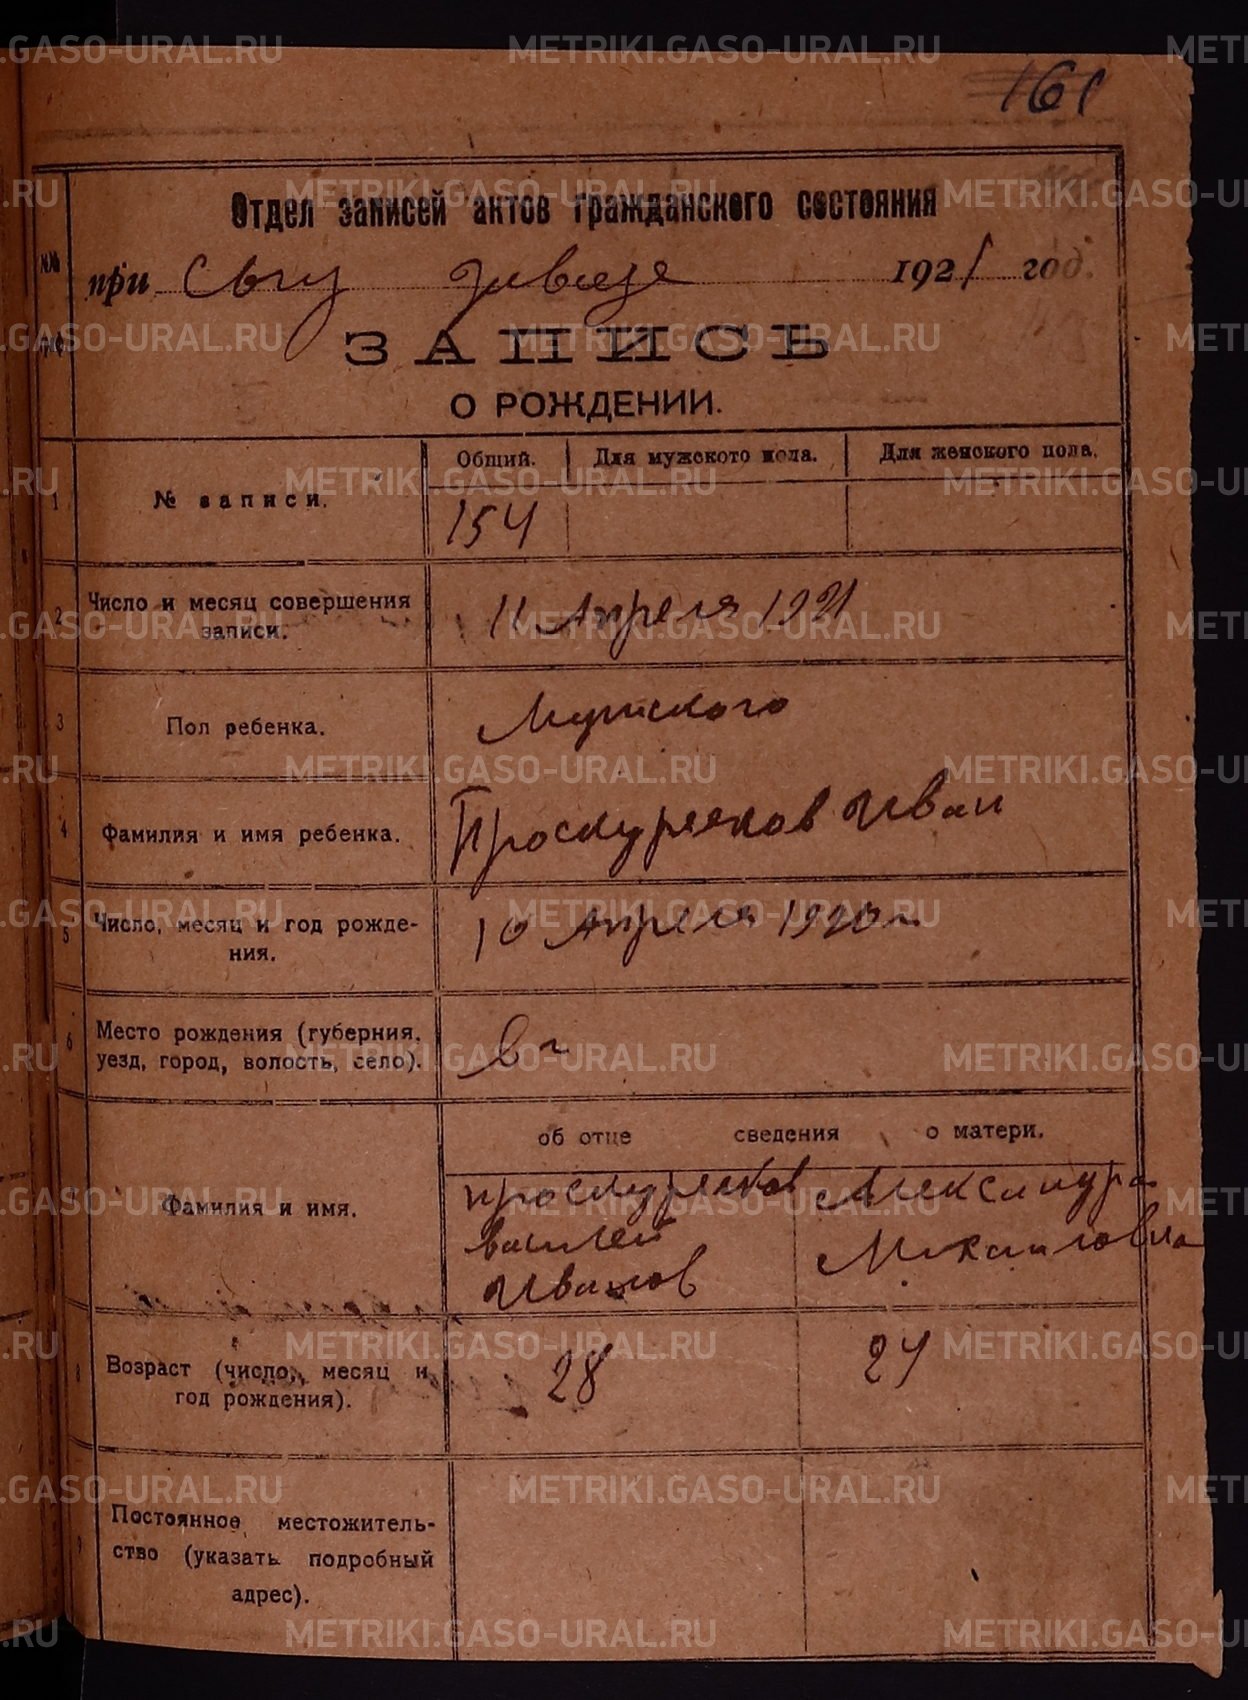 161
Отдел записей актов гражданского состояния
№№
при Сыс заводе 1921 год.
ЗАПИСЬ
О РОЖДЕНИИ.
Общий. Для мужского пола. Для женского пола.
1 № записи. 154
2 Число и месяц совершения
записи. 11 Апреля 1921
3 Пол ребенка. Мужского
4 Фамилия и имя ребенка. Проскуряков Иван
5 Число, месяц и год рожде-
ния. 10 Апреля 1920 г
6 Место рождения (губерния,
уезд, город, волость, село). в г
об отце сведения о матери.
Фамилия и имя. Проскуряков Александра
Василей Михаиловна
Иванов
8 Возраст (число, месяц и
год рождения). 28 24
9 Постоянное местожитель-
ство (указать подробный
адрес).
METRIKI.GASO-URAL.RU